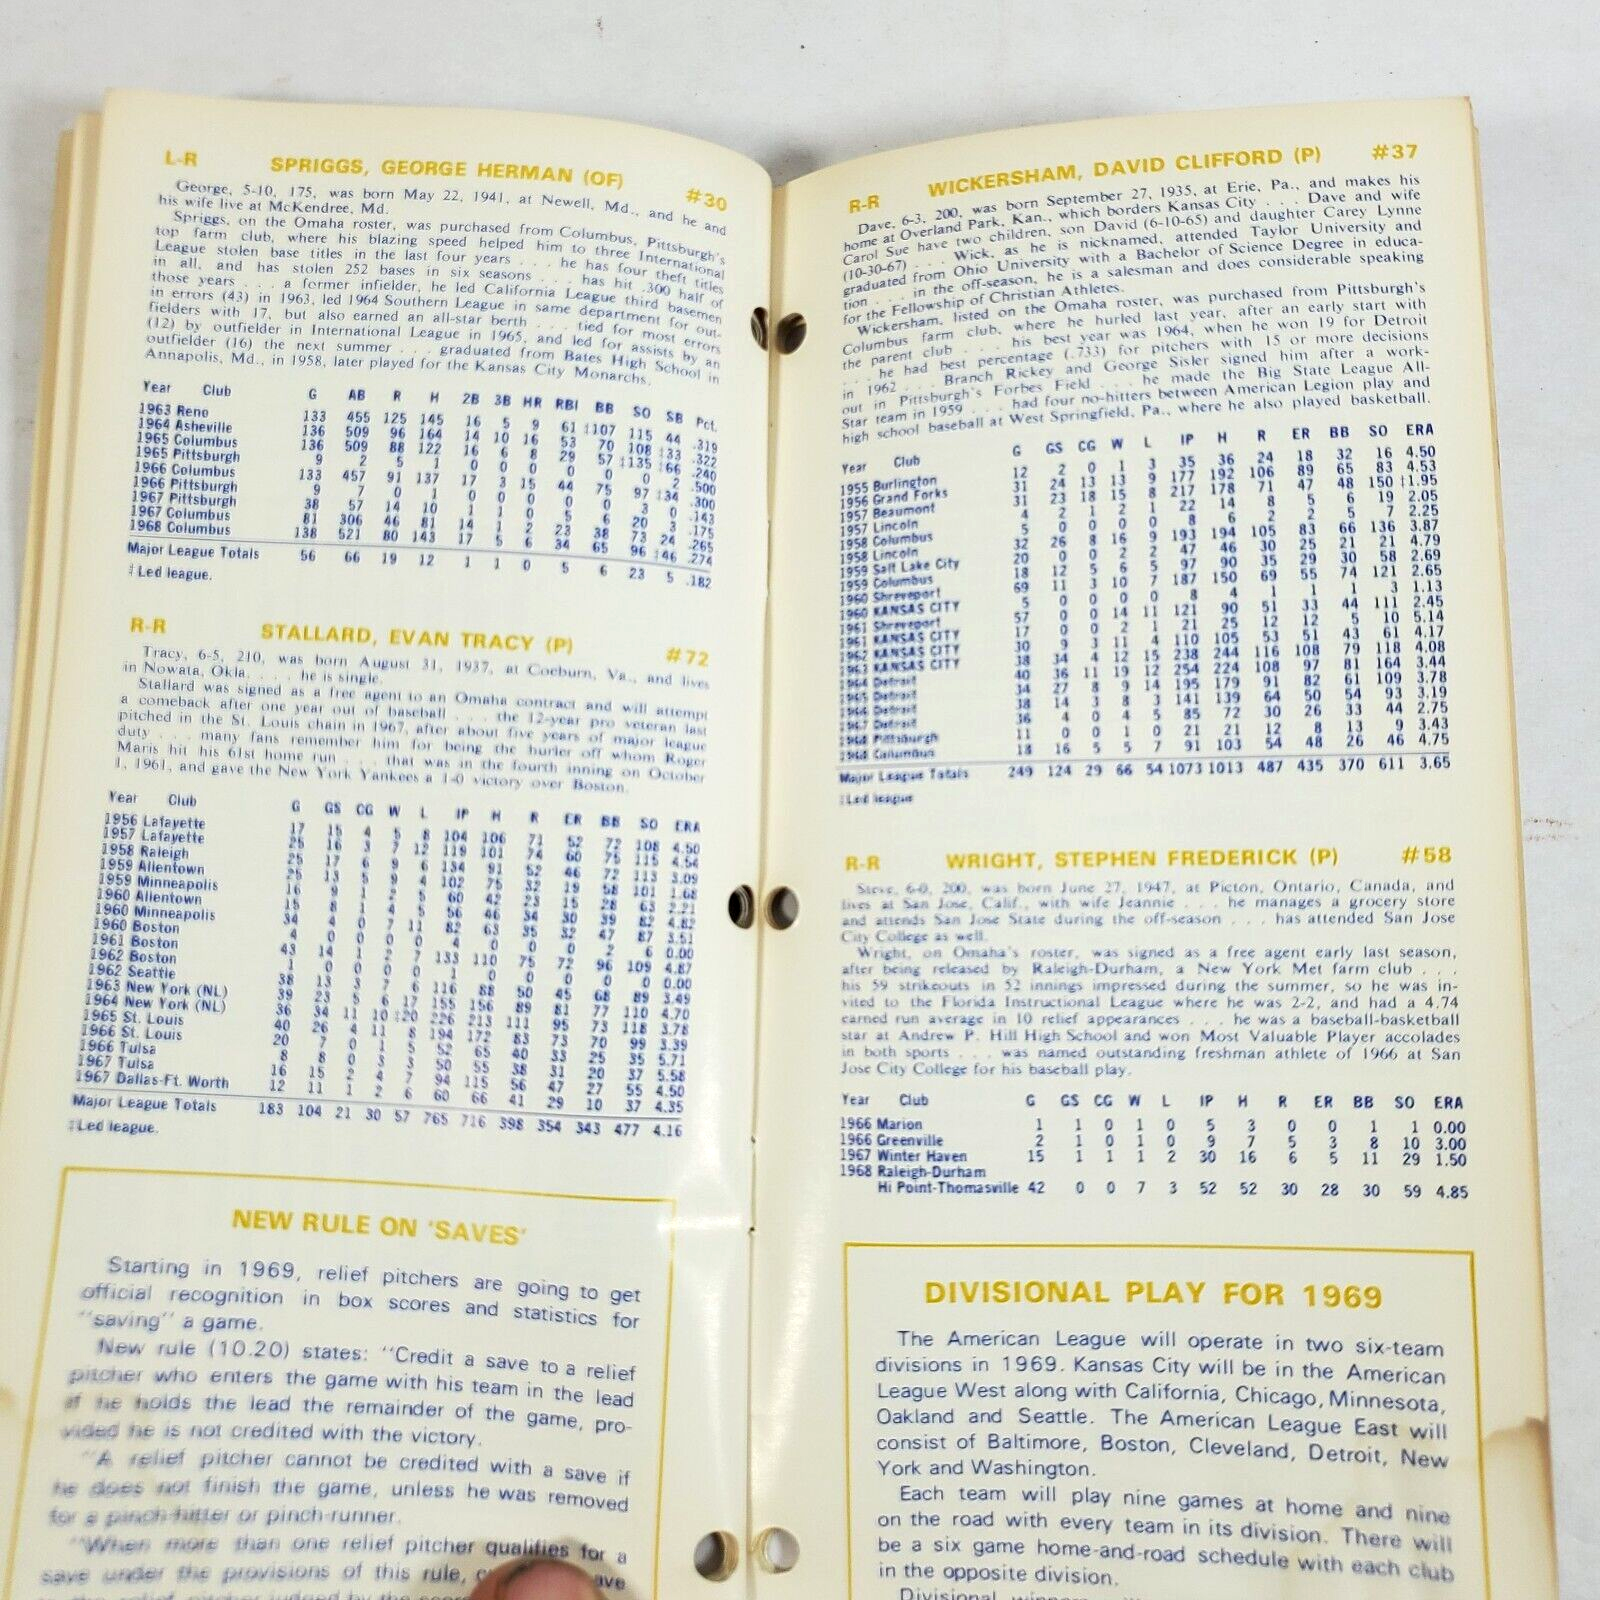 L-R SPRIGGS, GEORGE HERMAN (OF) #30
George, 5-10, 175, was born May 22, 1941, at Newell, Md., and he and
his wife live at McKendree, Md.
Spriggs, on the Omaha roster, was purchased from Columbus, Pittsburgh's
top farm club, where his blazing speed helped him to three International
League stolen base titles in the last four years . . . he has four theft titles
in all, and has stolen 252 bases in six seasons . . . has hit .300 half of
those years . . . a former infielder, he led California League third basemen
in errors (43) in 1963, led 1964 Southern League in same department for out-
fielders with 17, but also earned an all-star berth . . . tied for most errors
(12) by outfielder in International League in 1965, and led for assists by an
outfielder (16) the next summer . . . graduated from Bates High School in
Annapolis, Md., in 1958, later played for the Kansas City Monarchs.
Year Club G AB R H 2B 3B HR RBI BB SO SB Pct.
1963 Reno 133 455 125 145 16 5 9 61 ‡107 115 44 .319
1964 Asheville 136 509 96 164 14 10 16 53 70 108 ‡33 .322
1965 Columbus 136 509 88 122 16 6 8 29 57 ‡135 ‡66 .240
1965 Pittsburgh 9 2 5 1 0 0 0 0 0 0 2 .500
1966 Columbus 133 457 91 137 17 3 15 44 75 97 ‡34 .300
1966 Pittsburgh 9 7 0 1 0 0 0 0 0 3 0 .143
1967 Pittsburgh 38 57 14 10 1 1 0 5 6 20 3 .175
1967 Columbus 81 306 46 81 14 1 2 23 38 73 24 .265
1968 Columbus 138 521 80 143 17 5 6 34 65 96 ‡46 .274
Major League Totals 56 66 19 12 1 1 0 5 6 23 5 .182
‡Led league.
R-R STALLARD, EVAN TRACY (P) #72
Tracy, 6-5, 210, was born August 31, 1937, at Coeburn, Va., and lives
in Nowata, Okla. . . . he is single.
Stallard was signed as a free agent to an Omaha contract and will attempt
a comeback after one year out of baseball . . . the 12-year pro veteran last
pitched in the St. Louis chain in 1967, after about five years of major league
duty . . . many fans remember him for being the hurler off whom Roger
Maris hit his 61st home run . . . that was in the fourth inning on October
1, 1961, and gave the New York Yankees a 1-0 victory over Boston.
Year Club G GS CG W L IP H R ER BB SO ERA
1956 Lafayette 17 15 4 5 8 104 106 71 52 72 108 4.50
1957 Lafayette 25 16 3 7 12 119 101 74 60 75 115 4.54
1958 Raleigh 25 17 6 9 6 134 91 52 46 72 113 3.09
1959 Allentown 25 13 5 9 4 102 75 32 19 58 101 1.68
1959 Minneapolis 16 9 1 2 5 60 42 23 15 28 63 2.21
1960 Allentown 15 8 1 4 5 56 46 34 30 39 82 4.82
1960 Minneapolis 34 4 0 7 11 82 63 35 32 47 87 3.51
1960 Boston 4 0 0 0 0 4 0 0 0 2 6 0.00
1961 Boston 43 14 1 2 7 133 110 75 72 96 109 4.87
1962 Boston 1 0 0 0 0 1 0 0 0 0 0 0.00
1962 Seattle 38 13 3 7 6 116 88 50 45 68 89 3.49
1963 New York (NL) 39 23 5 6 17 155 156 89 81 77 110 4.70
1964 New York (NL) 36 34 11 10 ‡20 226 213 111 95 73 118 3.78
1965 St. Louis 40 26 4 11 8 194 172 83 73 70 99 3.39
1966 St. Louis 20 7 0 1 5 52 65 40 33 25 35 5.71
1966 Tulsa 8 8 0 3 3 50 55 38 31 20 37 5.58
1967 Tulsa 16 15 2 4 7 94 115 56 47 27 55 4.50
1967 Dallas-Ft. Worth 12 11 1 2 6 60 66 41 29 10 37 4.35
Major League Totals 183 104 21 30 57 765 716 398 354 343 477 4.16
‡Led league.
NEW RULE ON 'SAVES'
Starting in 1969, relief pitchers are going to get
official recognition in box scores and statistics for
"saving" a game.
New rule (10.20) states: "Credit a save to a relief
pitcher who enters the game with his team in the lead
if he holds the lead the remainder of the game, pro-
vided he is not credited with the victory.
"A relief pitcher cannot be credited with a save if
he does not finish the game, unless he was removed
for a pinch-hitter or pinch-runner.
"When more than one relief pitcher qualifies for a
save under the provisions of this rule,
R-R WICKERSHAM, DAVID CLIFFORD (P) #37
Dave, 6-3, 200, was born September 27, 1935, at Erie, Pa., and makes his
home at Overland Park, Kan., which borders Kansas City . . . Dave and wife
Carol Sue have two children, son David (6-10-65) and daughter Carey Lynne
(10-30-67) . . . Wick, as he is nicknamed, attended Taylor University and
graduated from Ohio University with a Bachelor of Science Degree in educa-
tion . . . in the off-season, he is a salesman and does considerable speaking
for the Fellowship of Christian Athletes.
Wickersham, listed on the Omaha roster, was purchased from Pittsburgh's
Columbus farm club, where he hurled last year, after an early start with
the parent club . . . his best year was 1964, when he won 19 for Detroit
. . . he had best percentage (.733) for pitchers with 15 or more decisions
in 1962 . . . Branch Rickey and George Sisler signed him after a work-
out in Pittsburgh's Forbes Field . . . he made the Big State League All-
Star team in 1959 . . . had four no-hitters between American Legion play and
high school baseball at West Springfield, Pa., where he also played basketball.
Year Club G GS CG W L IP H R ER BB SO ERA
1955 Burlington 12 2 0 1 3 35 36 24 18 32 16 4.50
1956 Grand Forks 31 24 13 13 9 177 192 106 89 65 83 4.53
1957 Beaumont 31 23 18 15 8 217 178 71 47 48 150 ‡1.95
1957 Lincoln 4 2 1 2 1 22 14 8 5 6 19 2.05
1958 Columbus 5 0 0 0 0 8 6 2 2 5 7 2.25
1958 Lincoln 32 26 8 16 9 193 194 105 83 66 136 3.87
1959 Salt Lake City 20 0 0 2 2 47 46 30 25 21 21 4.79
1959 Columbus 18 12 5 6 5 97 90 35 29 30 58 2.69
1960 Shreveport 69 11 3 10 7 187 150 69 55 74 121 2.65
1960 KANSAS CITY 5 0 0 0 0 8 4 1 1 1 3 1.13
1961 Shreveport 57 0 0 14 11 121 90 51 33 44 111 2.45
1961 KANSAS CITY 17 0 0 2 1 21 25 12 12 5 10 5.14
1962 KANSAS CITY 30 9 3 11 4 110 105 53 51 43 61 4.17
1963 KANSAS CITY 38 34 4 12 15 238 244 116 108 79 118 4.08
1964 Detroit 40 36 11 19 12 254 224 108 97 81 164 3.44
1965 Detroit 34 27 8 9 14 195 179 91 82 61 109 3.78
1966 Detroit 38 14 3 8 3 141 139 64 50 54 93 3.19
1967 Detroit 36 4 0 4 5 85 72 30 26 33 44 2.75
1968 Pittsburgh 11 0 0 1 0 21 21 12 8 13 9 3.43
1968 Columbus 18 16 5 5 7 91 103 54 48 26 46 4.75
Major League Totals 249 124 29 66 54 1073 1013 487 435 370 611 3.65
‡Led league
R-R WRIGHT, STEPHEN FREDERICK (P) #58
Steve, 6-0, 200, was born June 27, 1947, at Picton, Ontario, Canada, and
lives at San Jose, Calif., with wife Jeannie . . . he manages a grocery store
and attends San Jose State during the off-season . . . has attended San Jose
City College as well.
Wright, on Omaha's roster, was signed as a free agent early last season,
after being released by Raleigh-Durham, a New York Met farm club . . .
his 59 strikeouts in 52 innings impressed during the summer, so he was in-
vited to the Florida Instructional League where he was 2-2, and had a 4.74
earned run average in 10 relief appearances . . . he was a baseball-basketball
star at Andrew P. Hill High School and won Most Valuable Player accolades
in both sports . . . was named outstanding freshman athlete of 1966 at San
Jose City College for his baseball play.
Year Club G GS CG W L IP H R ER BB SO ERA
1966 Marion 1 1 0 1 0 5 3 0 0 1 1 0.00
1966 Greenville 2 1 0 1 0 9 7 5 3 8 10 3.00
1967 Winter Haven 15 1 1 1 2 30 16 6 5 11 29 1.50
1968 Raleigh-Durham
Hi Point-Thomasville 42 0 0 7 3 52 52 30 28 30 59 4.85
DIVISIONAL PLAY FOR 1969
The American League will operate in two six-team
divisions in 1969. Kansas City will be in the American
League West along with California, Chicago, Minnesota,
Oakland and Seattle. The American League East will
consist of Baltimore, Boston, Cleveland, Detroit, New
York and Washington.
Each team will play nine games at home and nine
on the road with every team in its division. There will
be a six game home-and-road schedule with each club
in the opposite division.
Divisional winners